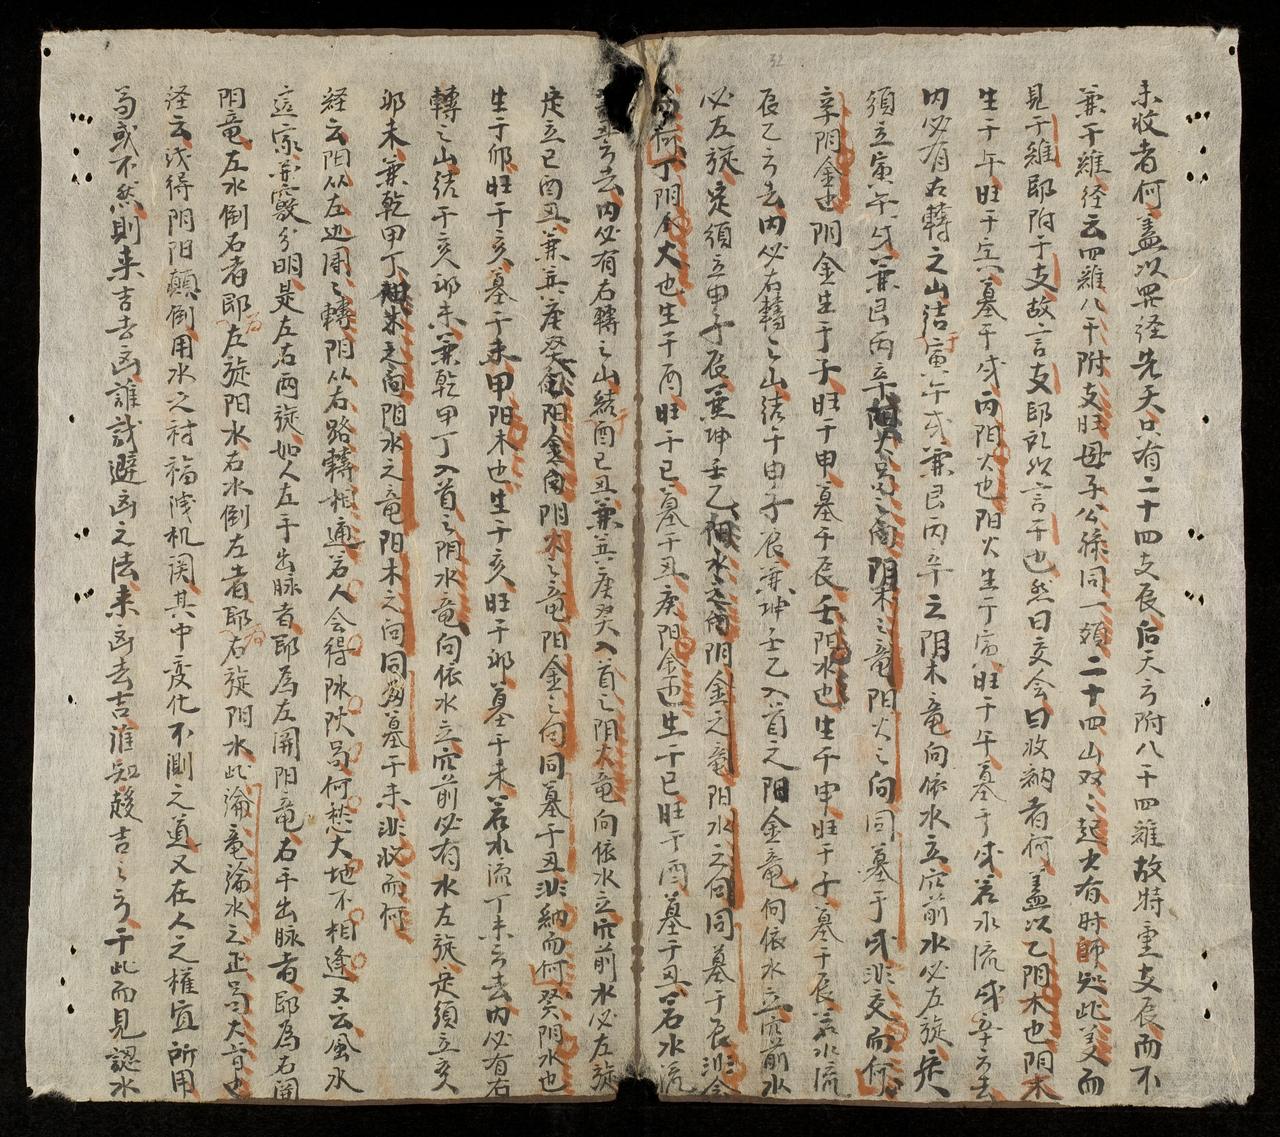 未收者何盖以罡经先天只有二十四支辰后天方附八干四維故特重支辰而不
兼干維经云四維八干附支旺毋子公孫同一類二十四山双々起少有时師知此義而
見于維即附于支故言支即所以言干也然曰交会曰收納者何盖以乙阴木也阴木
生于午旺于寅墓于戌丙阳火也阳火生于寅旺于午墓于戌若水流戌辛方去
内必有右轉之山结于寅午戌兼艮丙辛之阴木竜向依水立穴前水必左旋定
須立寅午戌兼艮丙辛阳火局之向阴木之竜阳火之向同墓于戌非交而何
辛阴金也阴金生于子旺于申墓于辰壬阳水也生于申旺于子墓于辰若水流
辰乙方去内必右轉之山结于申子辰兼坤壬乙入首之阴金竜向依水立穴前水
必左旋定須立申子辰兼坤壬乙阳水之向阴金之竜阳水之向同墓于辰非会
而何丁阴火也生于酉旺于巳墓于丑庚阳金也生于巳旺于酉墓于丑若水流
丑方去内必有右轉之山结于酉巳丑兼巽庚癸入首之阴火竜向依水立穴前水必左旋
定立巳酉丑兼巽庚癸阳金向阴火之竜阳金之向同墓于丑非納而何癸阴水也
生于卯旺于亥墓于未甲阳木也生于亥旺于卯墓于未若水流丁未方去内必有右
轉之山结于亥卯未兼乾甲丁入首之阴水竜向依水立穴前必有水左旋定須立亥
卯未兼乾甲丁之向阴水之竜阳木之向同墓于未非收而何
经云阳从左边团々轉阴从右路轉相通若人会得阴阳局何愁大地不相逢又云風水
这家兼竅分明是左右两旋如人左手出脉者即為左関阳竜右手出脉者即為右関
阴竜左水倒右者即為左旋阳水右水倒左者即為右旋阴水此論竜論水之正局大旨也
经云識得阴阳顛倒用水之村福浅机関其中变化不測之道又在人之權宜所用
苟或不然則来吉去凶誰識避凶之法来凶去吉誰知趍吉之方于此而見認水